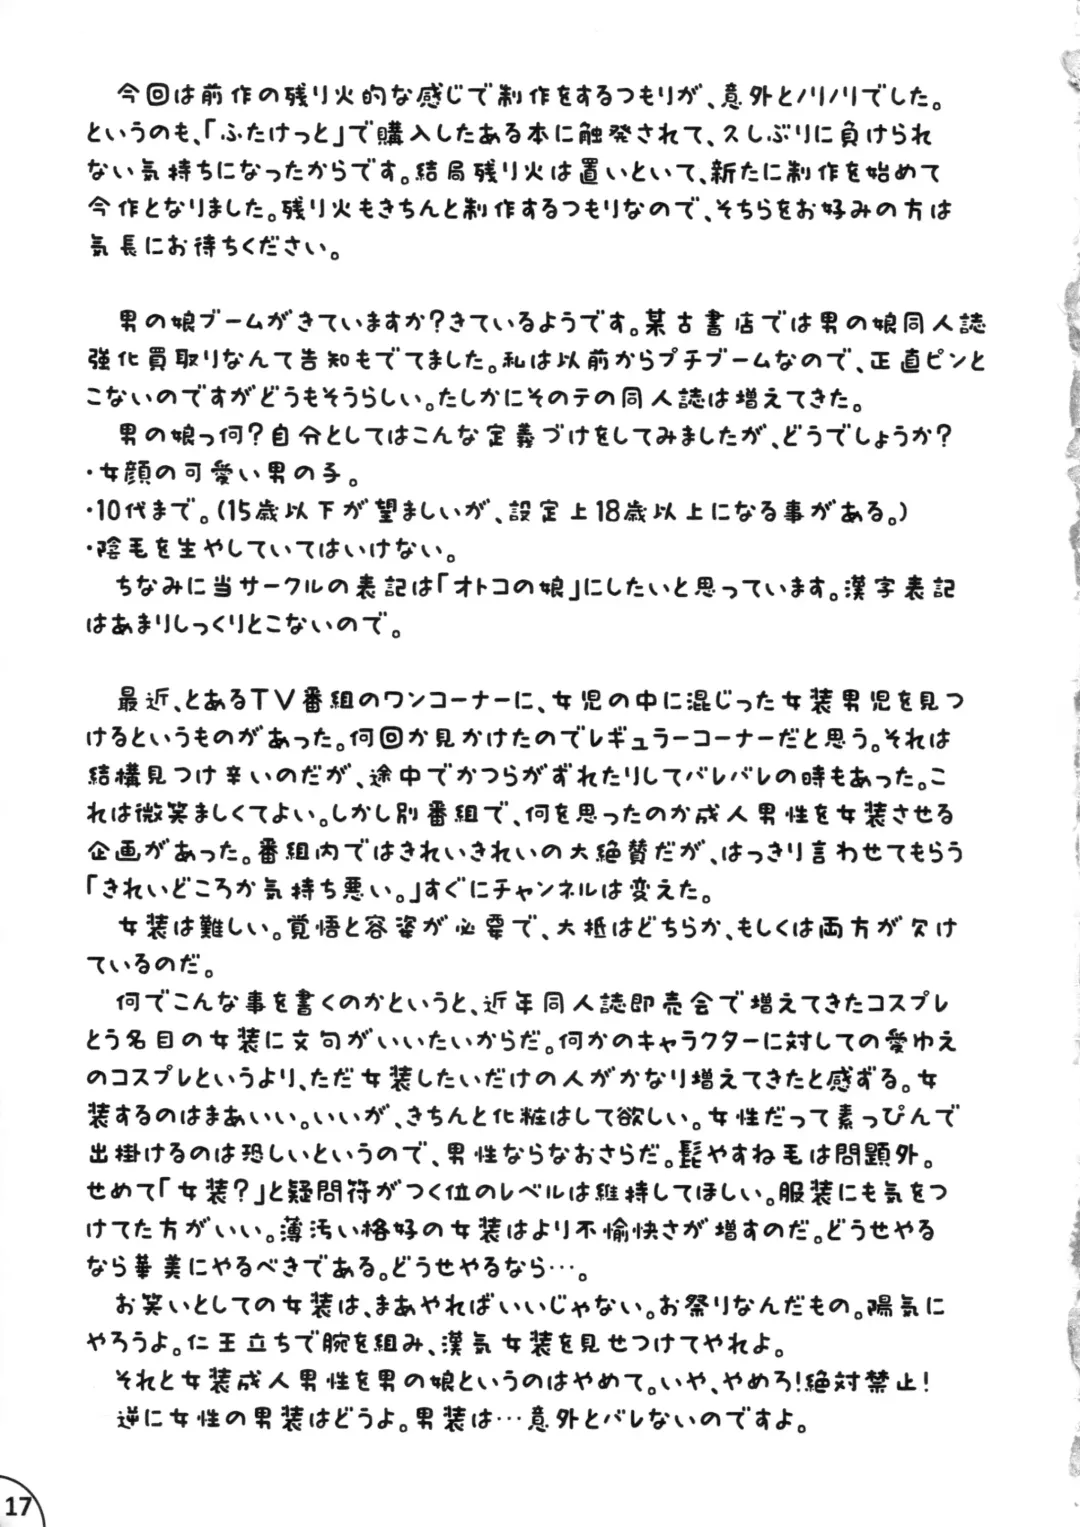 今回は前作の残り火的な感じで制作をするつもりが、意外とノリノリでした。
というのも、「ふたけっと」で購入したある本に触発されて、久しぶりに負けられ
ない気持ちになったからです。結局残り火は置いといて、新たに制作を始めて
今作となりました。残り火もきちんと制作するつもりなので、そちらをお好みの方は
気長にお待ちください。
男の娘ブームがきていますか?きているようです。某古書店では男の娘同人誌
強化買取りなんて告知もでてました。私は以前からプチブームなので、正直ピンと
こないのですがどうもそうらしい。たしかにそのテの同人誌は増えてきた。
男の娘っ何?自分としてはこんな定義づけをしてみましたが、どうでしょうか?
ちなみに当サークルの表記は「オトコの娘」にしたいと思っています。漢字表記
はあまりしっくりとこないので。
最近、とあるTV番組のワンコーナーに、女児の中に混じった女装男児を見つ
けるというものがあった。何回か見かけたのでレギュラーコーナーだと思う。それは
結構見つけ辛いのだが、途中でかつらがずれたりしてバレバレの時もあった。こ
れは微笑ましくてよい。しかし別番組で、何を思ったのか成人男性を女装させる
企画があった。番組内ではきれいきれいの大絶賛だが、はっきり言わせてもらう
「きれいどころか気持ち悪い。」すぐにチャンネルは変えた。
女装は難しい。覚悟と容姿が必要で、大抵はどちらか、もしくは両方が欠け
ているのだ。
何でこんな事を書くのかというと、近年同人誌即売会で増えてきたコスプレ
とう名目の女装に文句がいいたいからだ。何かのキャラクターに対しての愛ゆえ
のコスプレというより、ただ女装したいだけの人がかなり増えてきたと感ずる。女
装するのはまあいい。いいが、きちんと化粧はして欲しい。女性だって素っぴんで
出掛けるのは恐しいというので、男性ならなおさらだ。髭やすね毛は問題外。
せめて「女装?」と疑問符がつく位のレベルは維持してほしい。服装にも気をつ
けてた方がいい。薄汚い格好の女装はより不愉快さが増すのだ。どうせやる
なら華美にやるべきである。どうせやるなら…。
お笑いとしての女装は、まあやればいいじゃない。お祭りなんだもの。陽気に
やろうよ。仁王立ちで腕を組み、漢気女装を見せつけてやれよ。
それと女装成人男性を男の娘というのはやめて。いや、やめろ!絶対禁止!
逆に女性の男装はどうよ。男装は…意外とバレないのですよ。
17